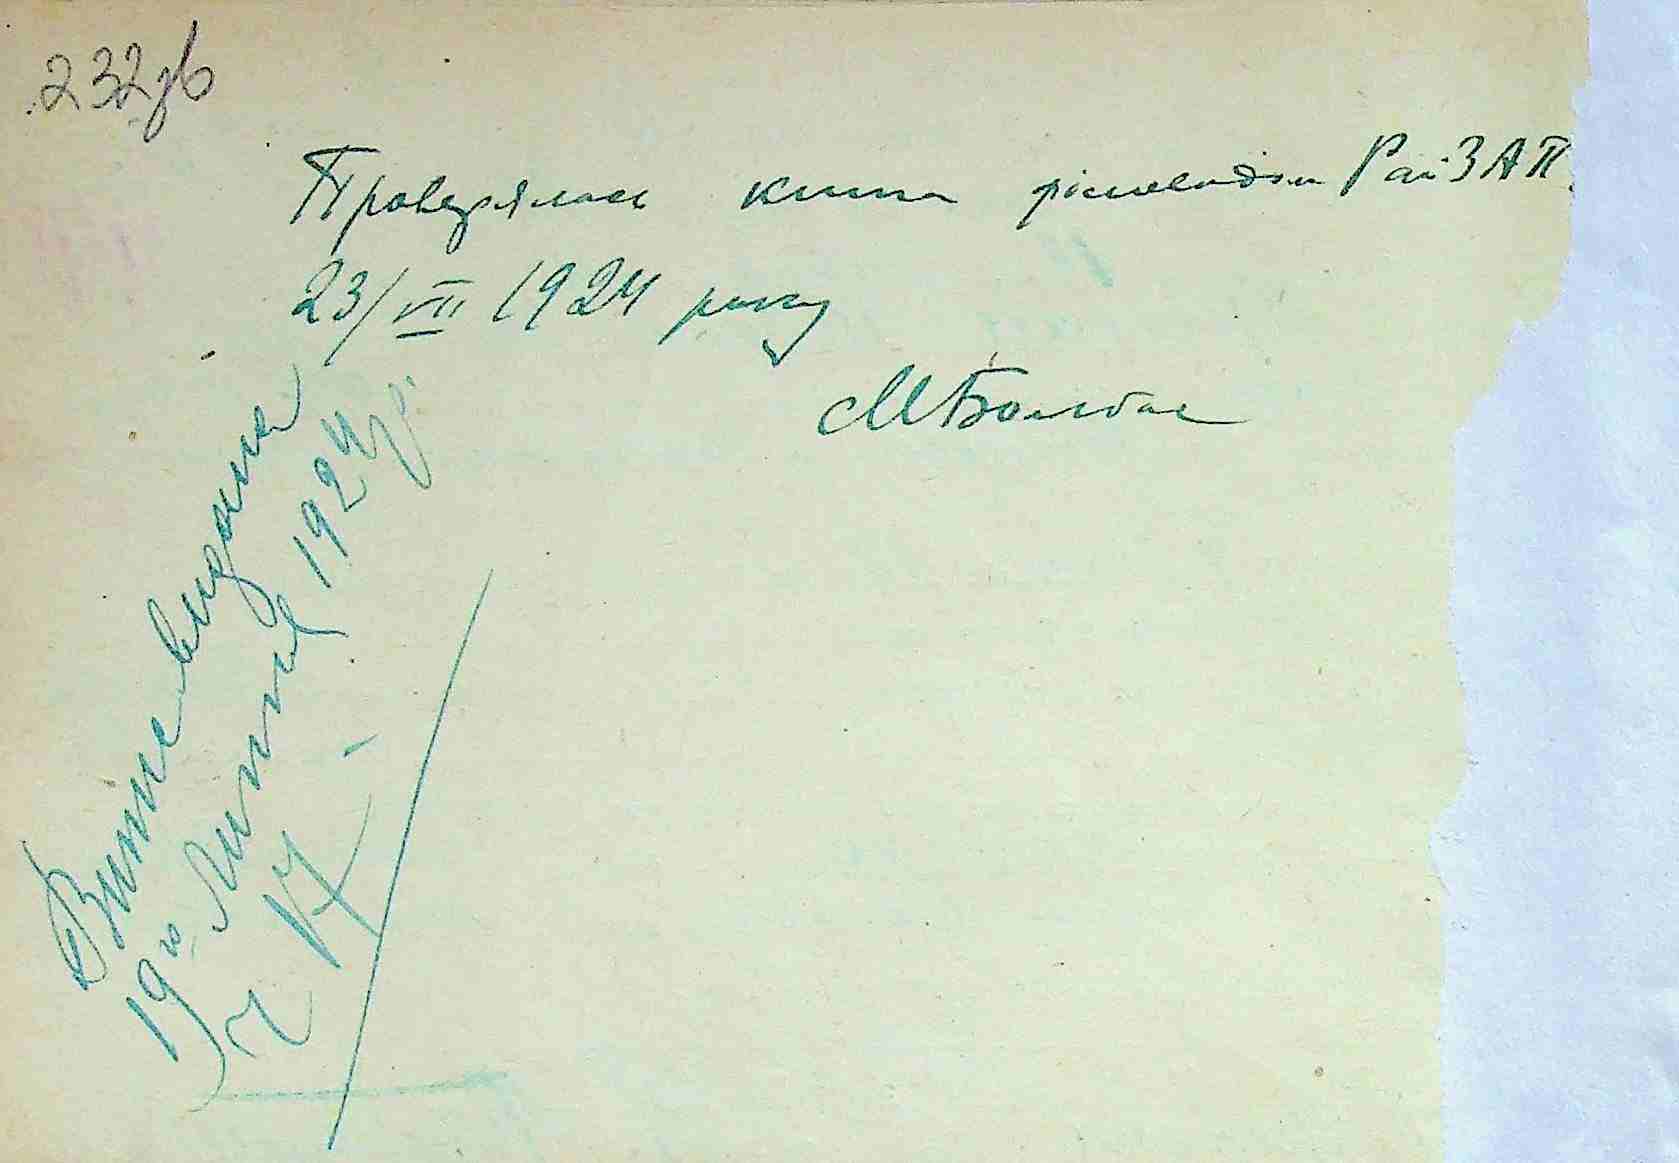 232зв
Проверялась книга РайЗАГС
23/VII 1924 року
МБолбас
Витяг видано
19го Липня 1924 р.